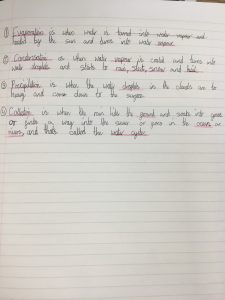 ① Evaporation is when water is turned into water vapour and
heated by the sun and turns into water vapour.
② Condensation is when water vapour is cooled and turns into
water droplets and starts to rain, sleet, snow and hail.
③ Precipitation is when the water droplets in the clouds are to
heavy and come down to the surface.
④ Collection is when the rain hits the ground and soaks into grass
or finds a way into the sewer or goes in the oceans or
rivers and thats called the water cycle.